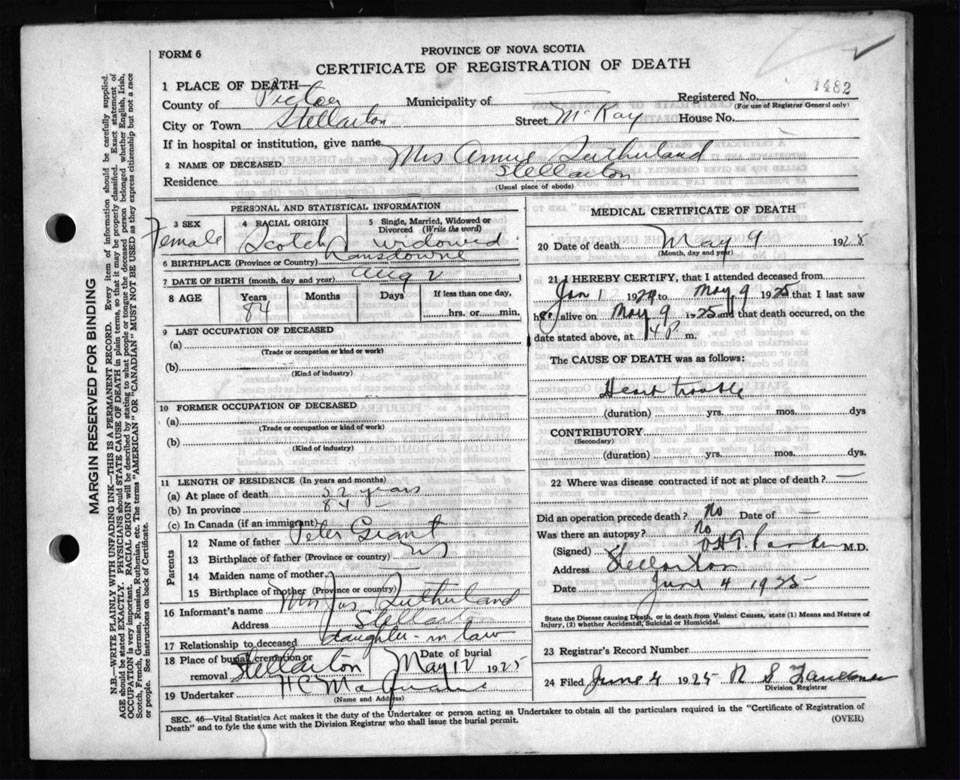 FORM 6
PROVINCE OF NOVA SCOTIA
CERTIFICATE OF REGISTRATION OF DEATH
1482
1 PLACE OF DEATH—
County of Pictou Municipality of — Registered No.
(For use of Registrar General only)
City or Town Stellarton Street McKay House No.
If in hospital or institution, give name
2 NAME OF DECEASED Mrs Annie Sutherland
Residence Stellarton
(Usual place of abode)
PERSONAL AND STATISTICAL INFORMATION
3 SEX 4 RACIAL ORIGIN 5 Single, Married, Widowed or Divorced (Write the word)
Female Scotch widowed
6 BIRTHPLACE (Province or Country) Lansdowne
7 DATE OF BIRTH (month, day and year) Aug 2
8 AGE Years Months Days If less than one day,
84 hrs. or min.
9 LAST OCCUPATION OF DECEASED
(a)
(Trade or occupation or kind or work)
(b)
(Kind of industry)
10 FORMER OCCUPATION OF DECEASED
(a)
(Trade or occupation or kind or work)
(b)
(Kind of industry)
11 LENGTH OF RESIDENCE (In years and months)
(a) At place of death 52 years
(b) In province 84
(c) In Canada (if an immigrant)
Parents
12 Name of father Peter Grant
13 Birthplace of father (Province or country)
14 Maiden name of mother
15 Birthplace of mother (Province or country)
16 Informant's name Mrs Jas Sutherland
Address Stellarton
17 Relationship to deceased daughter-in law
18 Place of burial, cremation or removal Stellarton Date of burial May 12 1925
19 Undertaker
(Name and Address)
MEDICAL CERTIFICATE OF DEATH
20 Date of death May 9 1925
(Month, day and year)
21 I HEREBY CERTIFY, that I attended deceased from
Jan 1 1924 to May 9 1925 that I last saw
her alive on May 9 1925 and that death occurred, on the
date stated above, at 4 P. m.
The CAUSE OF DEATH was as follows:
Heart trouble
(duration) yrs. mos. dys
CONTRIBUTORY
(Secondary)
(duration) yrs. mos. dys.
22 Where was disease contracted if not at place of death? —
Did an operation precede death? No Date of —
Was there an autopsy? No
(Signed) M.D.
Address Stellarton
Date June 4 1925
State the Disease causing Death, or in death from Violent Causes, state (1) Means and Nature of
Injury, (2) whether Accidental, Suicidal or Homicidal.
23 Registrar's Record Number
24 Filed June 4 1925 R S
Division Registrar
SEC. 46—Vital Statistics Act makes it the duty of the Undertaker or person acting as Undertaker to obtain all the particulars required in the "Certificate of Registration of
Death" and to fyle the same with the Division Registrar who shall issue the burial permit. (OVER)
MARGIN RESERVED FOR BINDING
N.B.—WRITE PLAINLY WITH UNFADING INK—THIS IS A PERMANENT RECORD. Every item of information should be carefully supplied.
AGE should be stated EXACTLY. PHYSICIANS should STATE CAUSE OF DEATH in plain terms, so that it may be properly classified. Exact statement of
OCCUPATION is very important. RACIAL ORIGIN will be described by stating to what people or tongue the deceased person belonged whether English, Irish,
Scotch, French, German, Russian, Ruthenian, etc. The terms "AMERICAN" or "CANADIAN" MUST NOT BE USED as they express citizenship but not a race
or people. See instructions on back of Certificate.